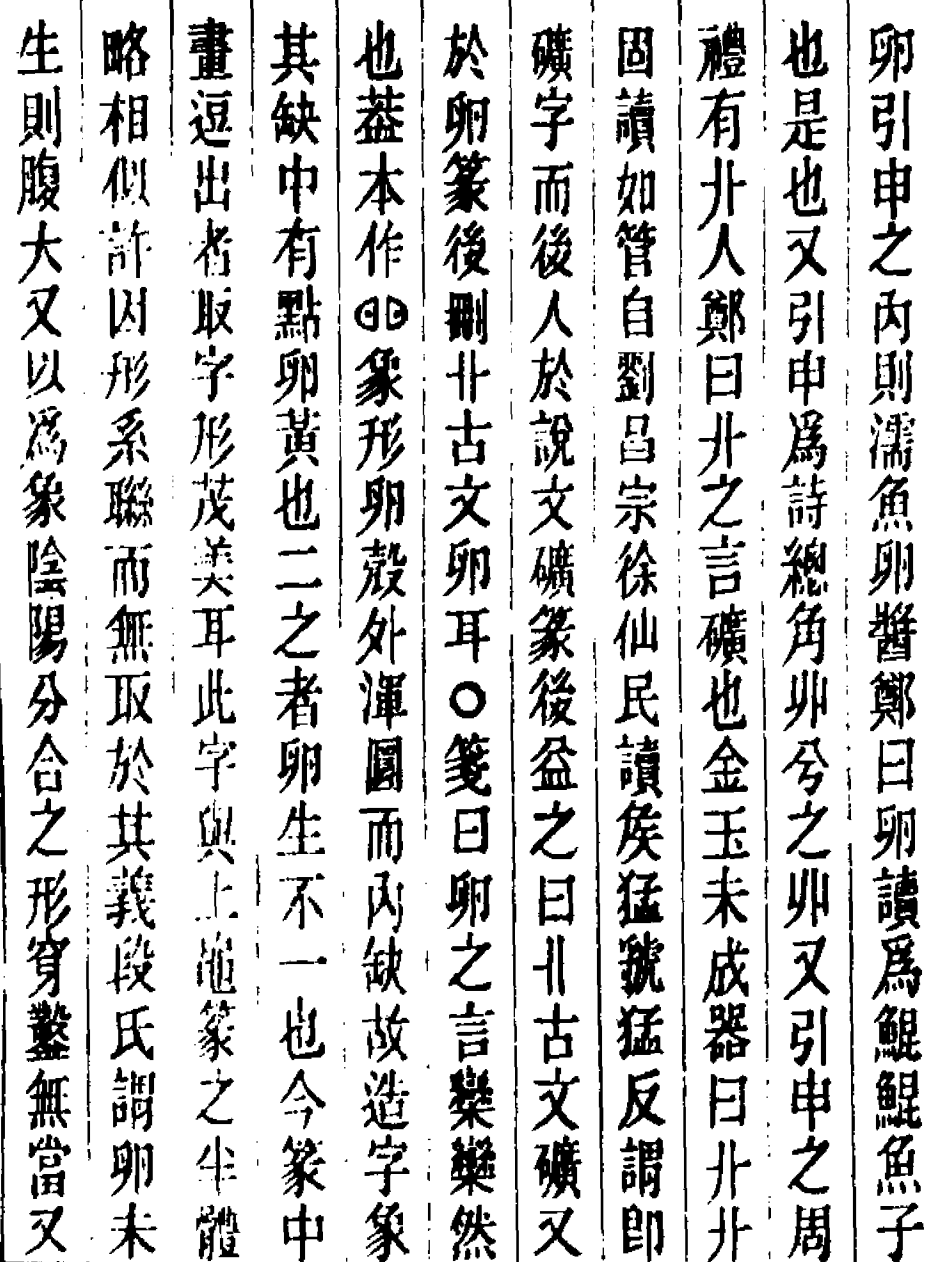 卵引申之內則濡魚卵醬鄭曰卵讀爲鯤鯤魚子
也是也又引申爲詩總角丱兮之丱又引申之周
禮有卝人鄭曰卝之言礦也金玉未成器曰卝卝
固讀如管自劉昌宗徐仙民讀矦猛虢猛反謂卽
礦字而後人於說文礦篆後益之曰卝古文礦又
於卵篆後刪卝古文卵耳○箋曰卵之言欒欒然
也葢本作象形卵殼外渾圓而內缺故造字象
其缺中有點卵黃也二之者卵生不一也今篆中
畫逗出者取字形茂美耳此字與上黽篆之半體
略相似許因形系聯而無取於其義段氏謂卵未
生則腹大又以爲象陰陽分合之形穿鑿無當又